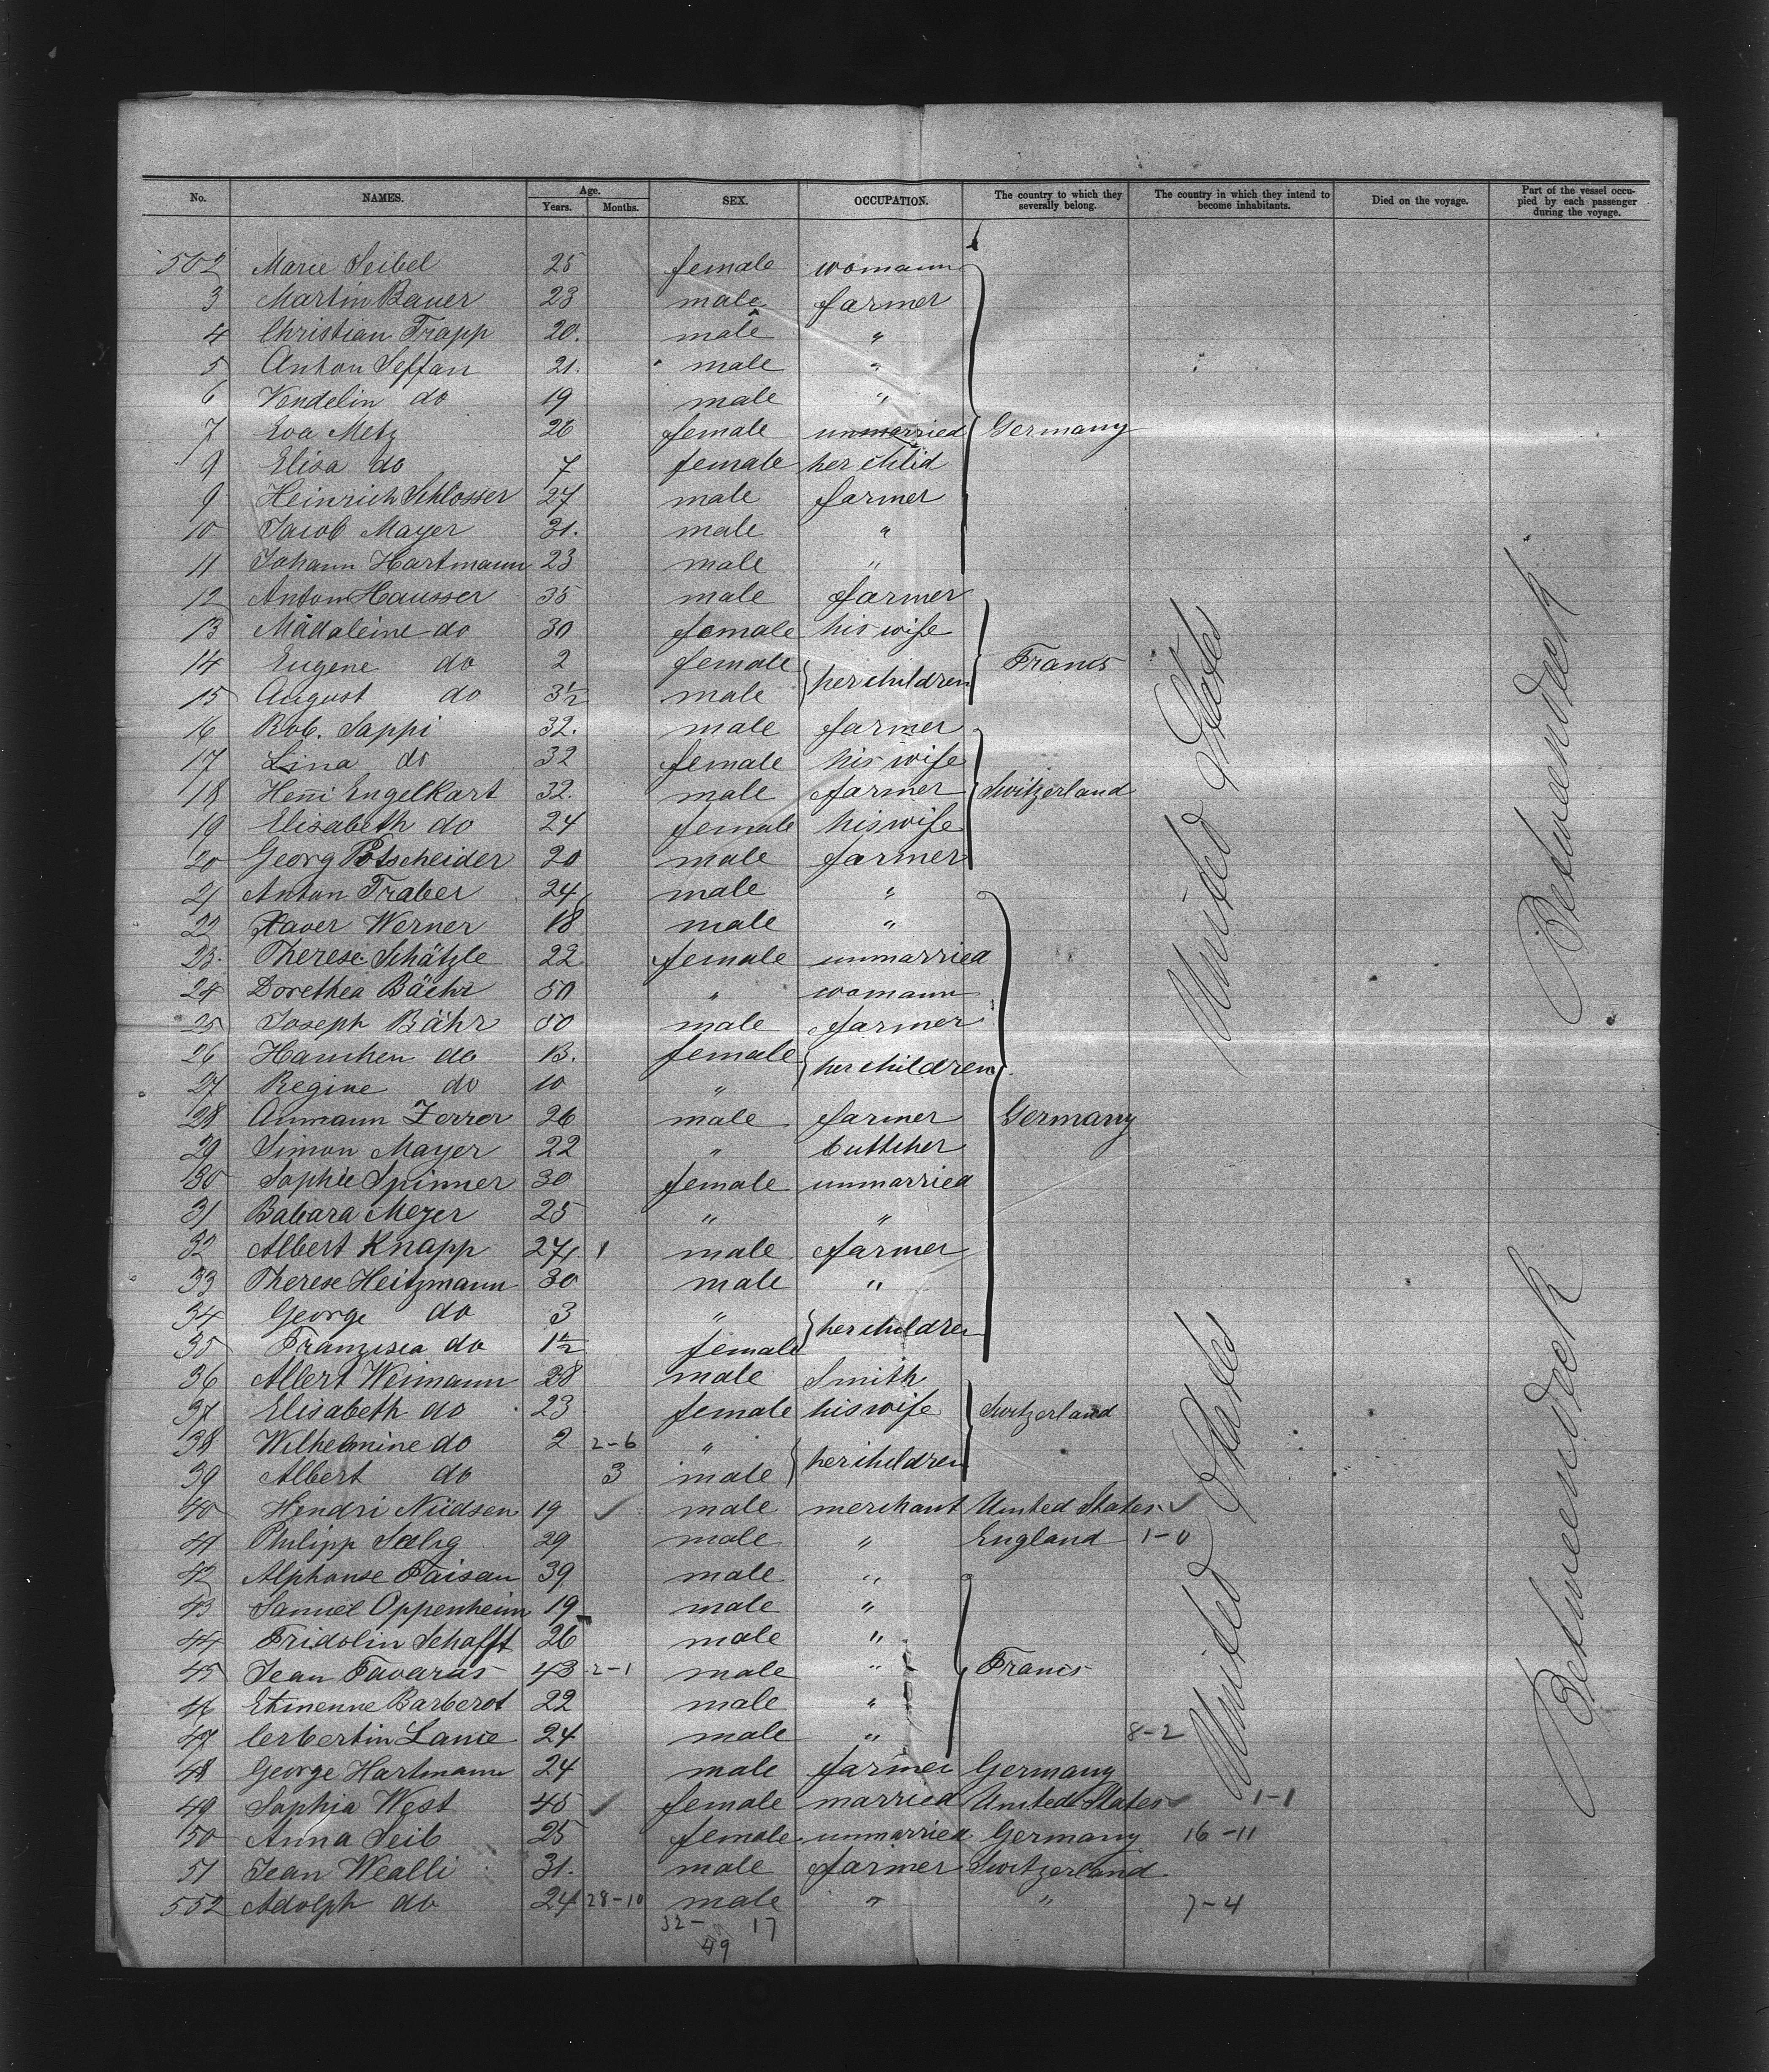 No. NAMES. Age. Years. Months. SEX. OCCUPATION. The country to which they severally belong. The country in which they intend to become inhabitants. Died on the voyage. Part of the vessel occupied by each passenger during the voyage.
502 Marie Seibel 25 female womann
3 Martin Bauer 23 male farmer
4 Christian Trapp 20. male "
5 Anton Seffan 21. male "
6 Vendelin do 19 male "
7 Eva Metz 26 female unmarried Germany
9 Elisa do 7 female her child
9 Heinrich Schlosser 27 male farmer
10 Jacob Mayer 31. male "
11 Johann Hartmann 23 male "
12 Anton Hausser 35 male farmer
13 Madaleine do 30 female his wife
14 Eugene do 2 female her children Francs
15 August do 3½ male
16 Rob. Sappi 32. male farmer
17 Lina do 32 female his wife
18 Henri Engelkart 32. male farmer Switzerland
19 Elisabeth do 24 female his wife
20 Georg Potscheider 20 male farmer
21 Anton Traber 24 male "
22 Xaver Werner 18 male "
23. Therese Schätzle 22 female unmarried
24 Dorethea Bäehr 50 " womann
25 Joseph Bähr 50 male farmer
26 Hanchen do 13. female her children
27 Regine do 10 "
28 Anmann Zerrer 26 male farmer Germany
29 Simon Mayer 22 " buttcher
30 Sophie Spinner 30 female unmarried
31 Babara Meyer 25 " "
32 Albert Knapp 27 1 male farmer
33 Therese Heitzmann 30 male "
34 George do 3 " her children
35 Franzisca do 1½ female
36 Albert Weimann 28 male Smith
37 Elisabeth do 23 female his wife Switzerland
38 Wilhelmine do 2 2-6 " her children
39 Albert do 3 male
40 Hendri Nüdsen 19 ✓ male merchant United States ✓
41 Philipp Seelig 29 male " England 1-0
42 Alphonse Faisan 39 male "
43 Samuel Oppenheim 19 male "
44 Fridolin Schafft 26 male "
45 Jean Favaras 43 2-1 male " Francs
46 Etinenne Barberot 22 male "
47 Cerbertin Lanie 24 male " 8-2
48 George Hartmann 24 male farmer Germany
49 Sophia West 45 ✓ female married United States ✓ 1-1
50 Anna Seib 25 female unmarried Germany 16-11
51 Jean Wealli 31. male farmer Switzerland
552 Adolph do 24 28-10 male " " 7-4
32- 17
49
United States
United States
Betweendeck
Betweendeck